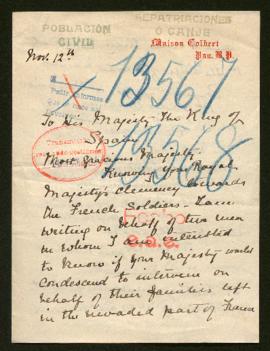 POBLACIÓN
CIVIL
REPATRIACIONES
O CANJE
Maison Colbert
Pau. B. P.
Nov. 12th
13567
13568
To His Majesty The King of
Spain
Most Gracious Majesty
Knowing your Royal
Majesty's clemency towards
the French Soldiers - I am
writing on behalf of two men
in whom I am interested
to know if your Majesty would
condescend to intervene on
behalf of their families left
in the invaded part of France